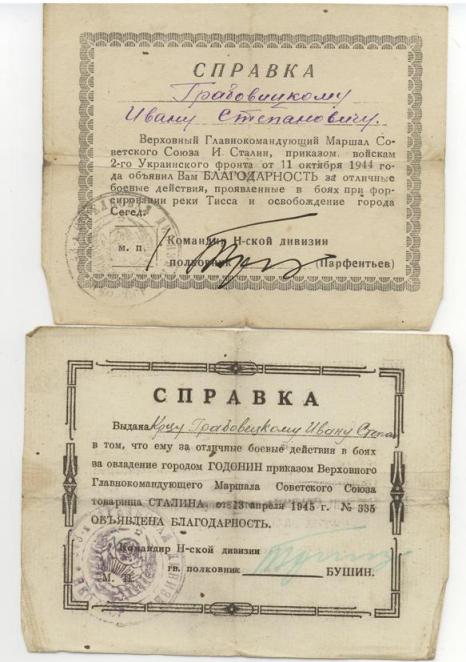 СПРАВКА
Грабовицкому
Ивану Степановичу.
Верховный Главнокомандующий Маршал Со-
ветского Союза И. Сталин, приказом войскам
2-го Украинского фронта от 11 октября 1944 го-
да объявил Вам БЛАГОДАРНОСТЬ за отличные
боевые действия, проявленные в боях при фор-
сировании реки Тисса и освобождение города
Сегед.
Командир Н-ской дивизии
м. п.
полковник (Парфентьев)
СПРАВКА
Выдана Грабовецкому Ивану Степа
в том, что ему за отличные боевые действия в боях
за овладение городом ГОДОНИН приказом Верховного
Главнокомандующего Маршала Советского Союза
товарища СТАЛИНА, от 13 апреля 1945 г. № 335
ОБЪЯВЛЕНА БЛАГОДАРНОСТЬ.
Командир Н-ской дивизии
М. П. гв. полковник БУШИН.